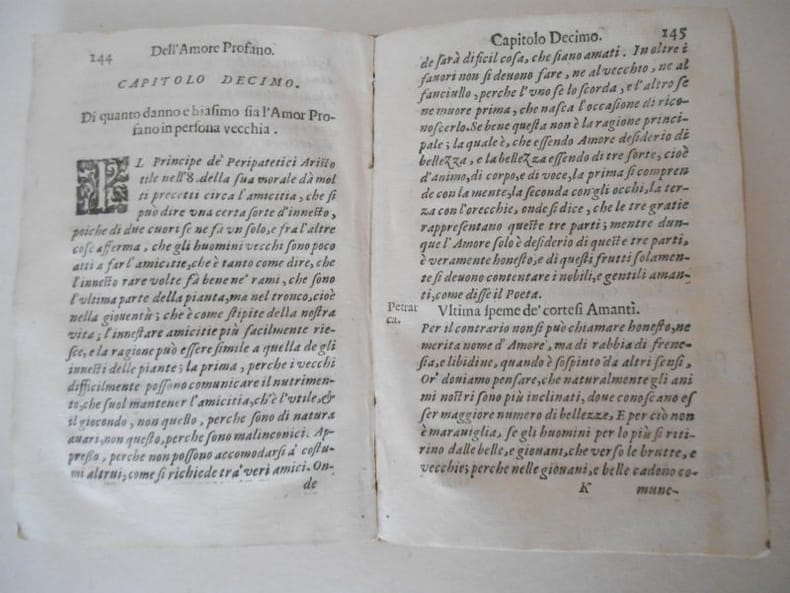 144 Dell'Amore Profano.
CAPITOLO DECIMO.
Di quanto danno e biasimo sia l'Amor Pro-
fano in persona vecchia.
IL Principe de' Peripatetici Aristo
tile nell'8. della sua morale dà mol
ti precetti circa l'amicitia, che si
può dire vna certa sorte d'innesto,
poiche di due cuori se ne fà vn solo, e frà l'altre
cose afferma, che gli huomini vecchi sono poco
atti a far l'amicitie, che è tanto come dire, che
l'innesto rare volte fà bene ne' rami, che sono
l'vltima parte della pianta, ma nel tronco, cioè
nella giouentù; che è come stipite della nostra
vita; l'innestare amicitie più facilmente rie-
sce, e la ragione può essere simile a quella de gli
innesti delle piante; la prima, perche i vecchi
difficilmente possono comunicare il nutrimen-
to, che suol mantener l'amicitia, ch'è l'vtile, &
il giocondo, non quello, perche sono di natura
auari, non questo, perche sono malinconici. Ap-
presso, perche non possono accomodarsi a' costu-
mi altrui, come si richiede trà veri amici. On-
de
Capitolo Decimo. 145
de sarà dificil cosa, che siano amati. In oltre i
fauori non si deuono fare, ne al vecchio, ne al
fanciullo, perche l'vno se lo scorda, e l'altro se
ne muore prima, che nasca l'occasione di rico-
noscerlo. Se bene questa non è la ragione princi-
pale; la quale è, che essendo Amore desiderio di
bellezza, e la bellezza essendo di tre sorte, cioè
d'animo, di corpo, e di voce, la prima si compren
de con la mente, la seconda con gli occhi, la ter-
za con l'orecchie, onde si dice, che le tre gratie
rappresentano queste tre parti; mentre dun-
que l'Amore solo è desiderio di queste tre parti,
è veramente honesto, e di questi frutti solamen-
te si deuono contentare i nobili, e gentili aman-
ti, come disse il Poeta.
Petrar
ca.
Vltima speme de' cortesi Amanti.
Per il contrario non si può chiamare honesto, ne
merita nome d'Amore, ma di rabbia di frene-
sia, e libidine, quando è sospinto da altri sensi,
Or' douiamo pensare, che naturalmente gli ani
mi nostri sono più inclinati, doue conoscano es
ser maggiore numero di bellezze, E per ciò non
è marauiglia, se gli huomini per lo più si riti-
rino dalle belle, e giouani, che verso le brutte, e
vecchie; perche nelle giouani, e belle cadono co-
K mune-